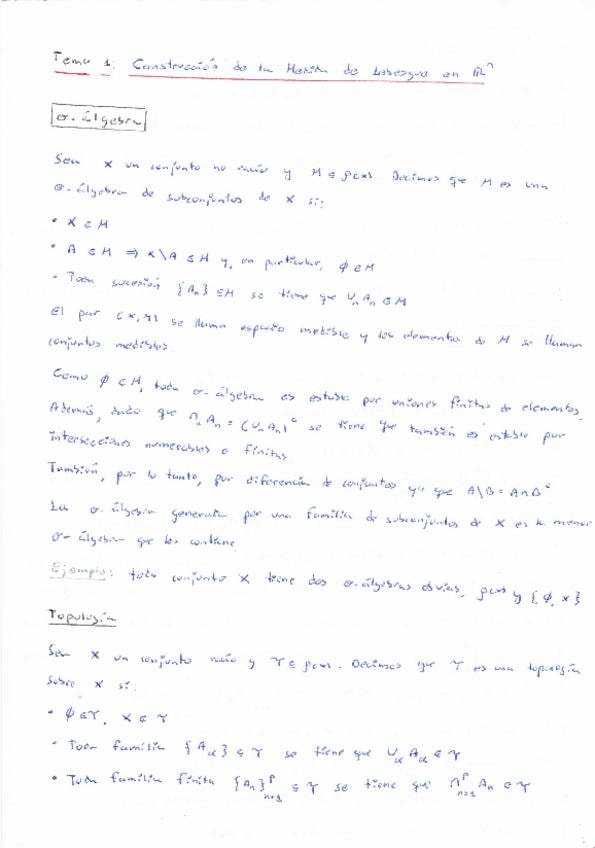 Tema 1: Construcción de la Medida de Lebesgue en ℝⁿ
σ-álgebra
Sea X un conjunto no vacío y M ⊆ ρ(X). Decimos que M es una
σ-álgebra de subconjuntos de X si:
• X ∈ M
• A ∈ M ⇒ X\A ∈ M y, en particular, ∅ ∈ M
• Toda sucesión {Aₙ} ⊆ M se tiene que ∪ₙ Aₙ ∈ M
El par (X, M) se llama espacio medible y los elementos de M se llaman
conjuntos medibles.
Como ∅ ∈ M, toda σ-álgebra es estable por uniones finitas de elementos.
Además, dado que ∩ₙ Aₙ = (∪ₙ Aₙ)ᶜ se tiene que también es estable por
intersecciones numerables o finitas
También, por lo tanto, por diferencia de conjuntos ya que A\B = A∩Bᶜ
La σ-álgebra generada por una familia de subconjuntos de X es la menor
σ-álgebra que los contiene
Ejemplo: todo conjunto X tiene dos σ-álgebras obvias, ρ(X) y {∅, X}
Topología
Sea X un conjunto vacío y Υ ⊆ ρ(X). Decimos que Υ es una topología
sobre X si:
• ∅ ∈ Υ, X ∈ Υ
• Toda familia {A_α} ⊆ Υ se tiene que ∪_α A_α ∈ Υ
• Toda familia finita {Aₙ}ᵖₙ₌₁ ⊆ Υ se tiene que ∩ᵖₙ₌₁ Aₙ ∈ Υ